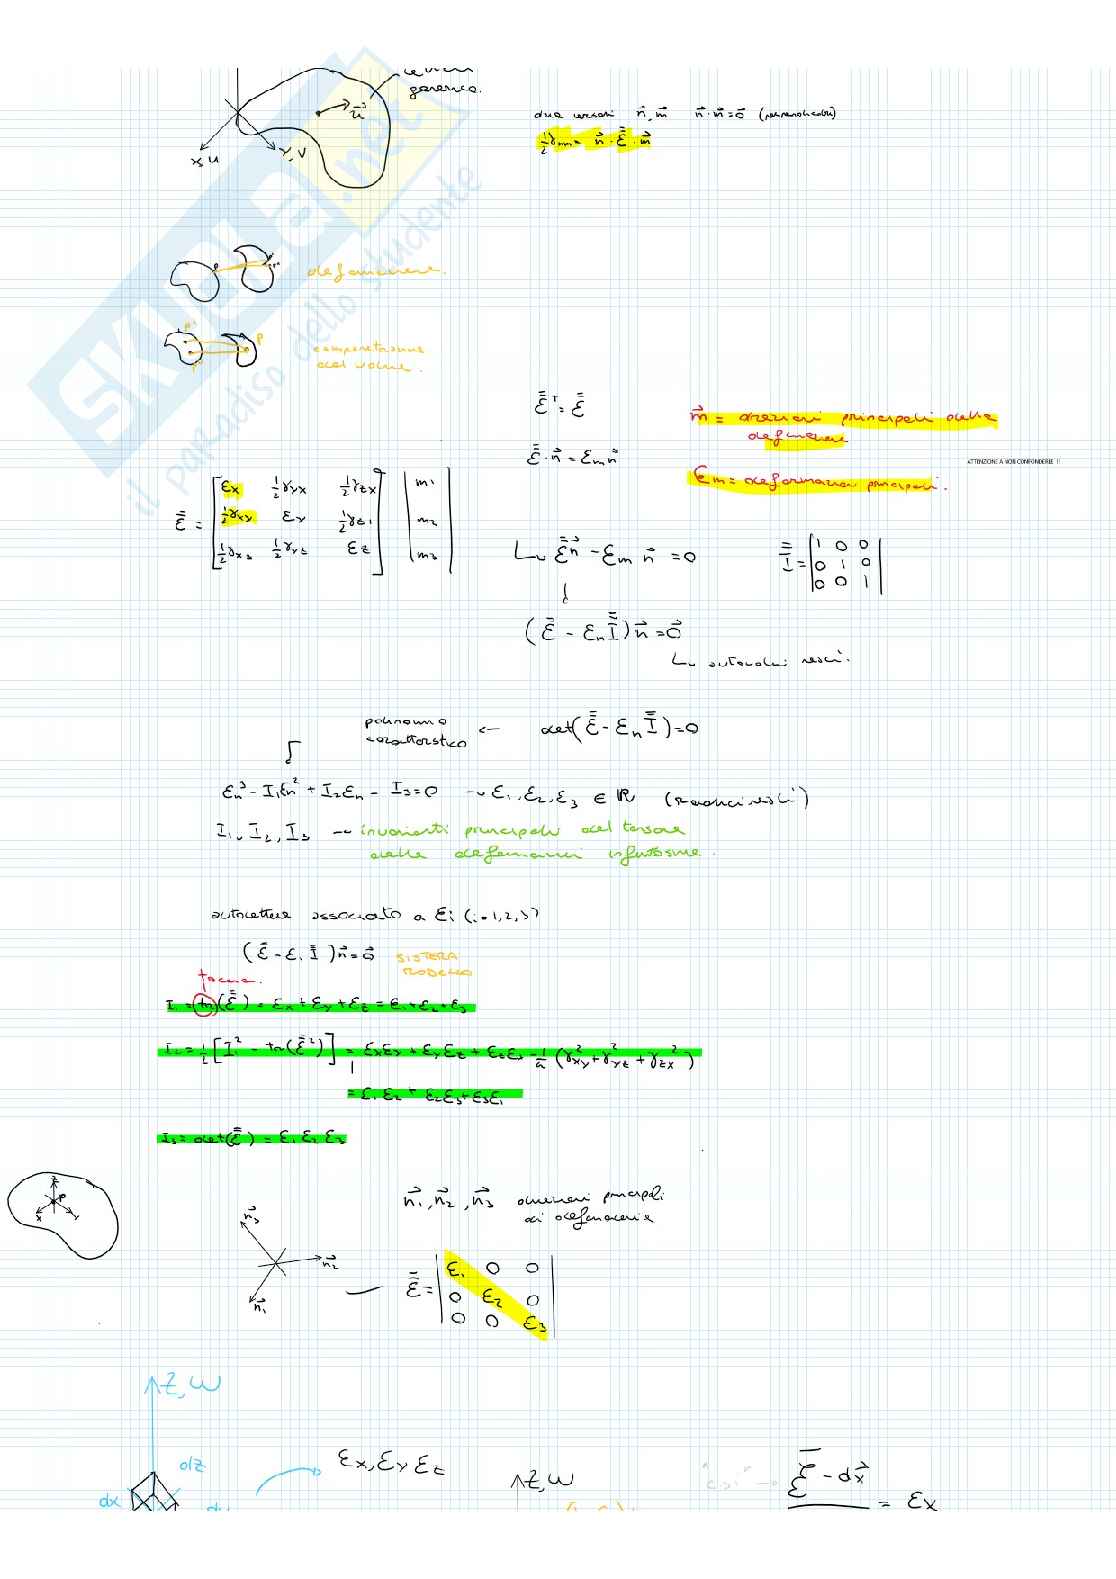 generico.
due versori n⃗, m⃗ n⃗·m⃗=0⃗ (perpendicolari)
½γnm = n⃗·ε̿·m⃗
u⃗
x,u
y,v
SKUOLA.net
il paradiso dello studente
deformazione.
P
compenetrazione
del volume.
ε̿ᵀ = ε̿
ε̿·n⃗ = εn n⃗
n⃗ = direzioni principali della
deformazione
ATTENZIONE A NON CONFONDERLE !!
εn = deformazioni principali.
ε̿ = [εx ½γyx ½γzx] |m1|
[½γxy εy ½γzy] |m2|
[½γxz ½γyz εz] |m3|
ε̿n⃗ - εn n⃗ = 0
I̿ = |1 0 0|
|0 1 0|
|0 0 1|
(ε̿ - εn I̿)n⃗ = 0⃗
autovalori reali.
polinomio
caratteristico
← det(ε̿ - εn I̿) = 0
εn³ - I1εn² + I2εn - I3 = 0 → ε1, ε2, ε3 ∈ ℝ (radici reali)
I1, I2, I3 → invarianti principali del tensore
delle deformazioni infinitesime.
autovettore associato a εi (i=1,2,3)
(ε̿ - εi I̿)n⃗ = 0⃗ SISTEMA
traccia.
I1 = tr(ε̿) = εx + εy + εz = ε1 + ε2 + ε3
I2 = ½[I1² - tr(ε̿²)] = εxεy + εyεz + εzεx - ¼(γxy² + γyz² + γzx²)
= ε1ε2 + ε2ε3 + ε3ε1
I3 = det(ε̿) = ε1 ε2 ε3
z
P
x
y
n⃗1, n⃗2, n⃗3 direzioni principali
di deformazione
n⃗3
n⃗2
n⃗1
ε̿ = |ε1 0 0|
|0 ε2 0|
|0 0 ε3|
z,w
dz
dx
εx, εy εz
z,w
ε̄ - dx⃗
= εx